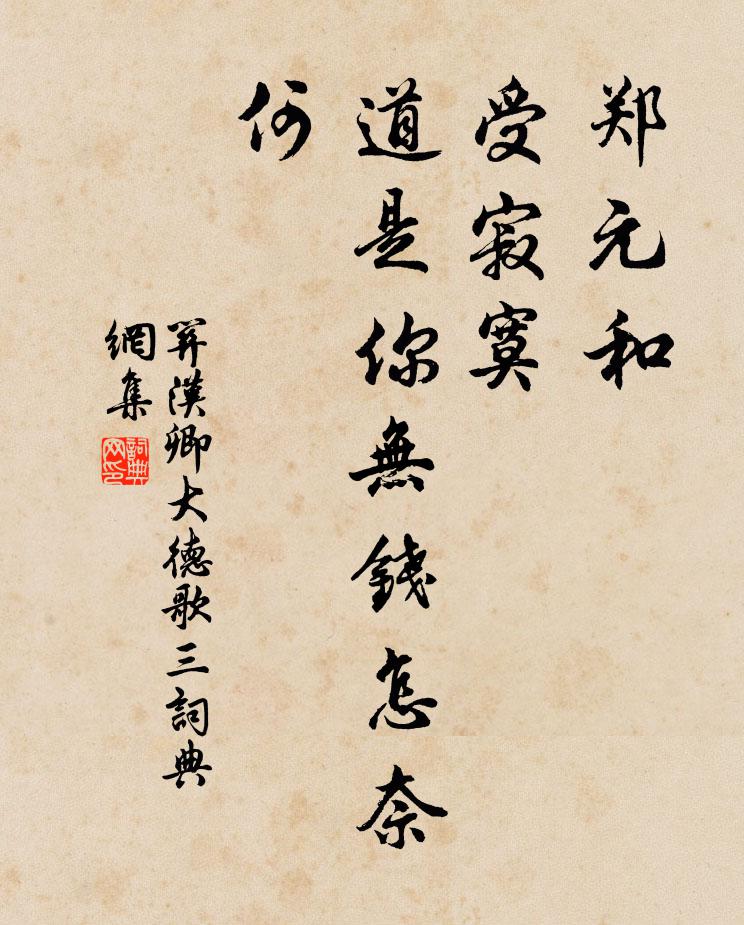 郑元和
受寂寞
道是你無錢怎奈
何
関漢卿大德歌三詞典
網集
詞典
网印